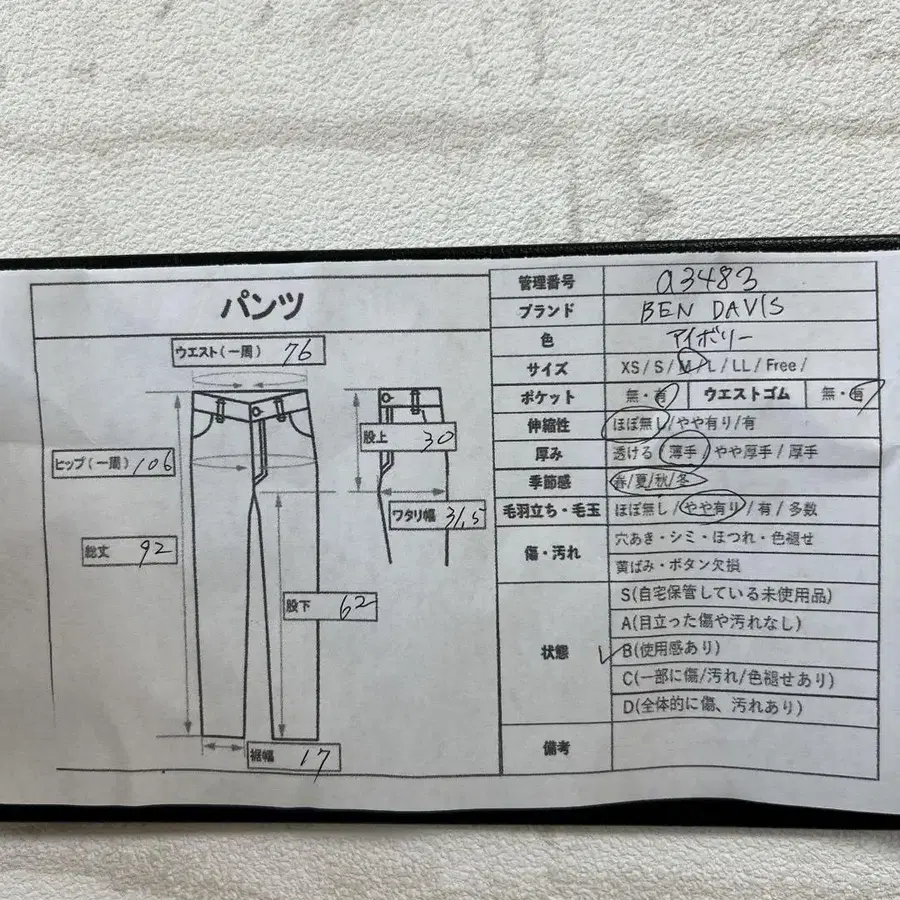 パンツ
ウエスト(一周) 76
股上 30
ヒップ(一周) 106
ワタリ幅 31.5
総丈 92
股下 62
裾幅 17
管理番号 a3483
ブランド BEN DAVIS
色 アイボリー
サイズ XS/S/M/L/LL/Free/
ポケット 無・有 ウエストゴム 無・有
伸縮性 ほぼ無し/やや有り/有
厚み 透ける/薄手/やや厚手/厚手
季節感 春/夏/秋/冬
毛羽立ち・毛玉 ほぼ無し/やや有り/有/多数
傷・汚れ 穴あき・シミ・ほつれ・色褪せ
黄ばみ・ボタン欠損
状態 S(自宅保管している未使用品)
A(目立った傷や汚れなし)
B(使用感あり)
C(一部に傷/汚れ/色褪せあり)
D(全体的に傷、汚れあり)
備考